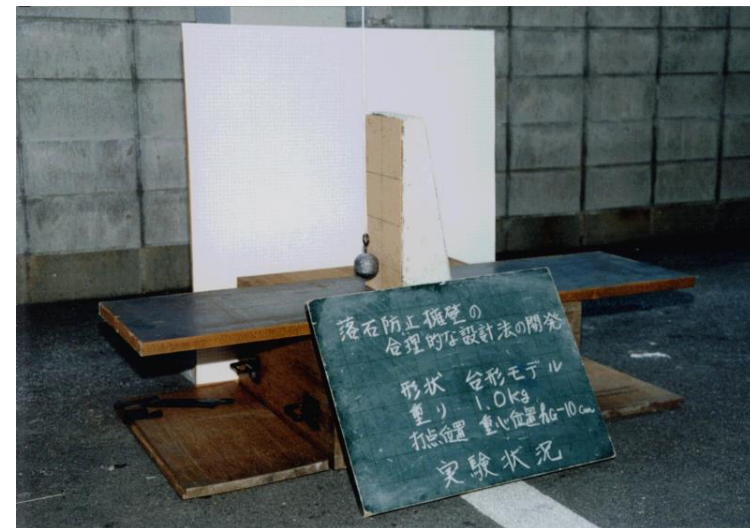 落石防止擁壁の
合理的な設計法の開発
形状 台形モデル
重り 1.0kg
打点位置 重心位置hG-10cm
実験状況